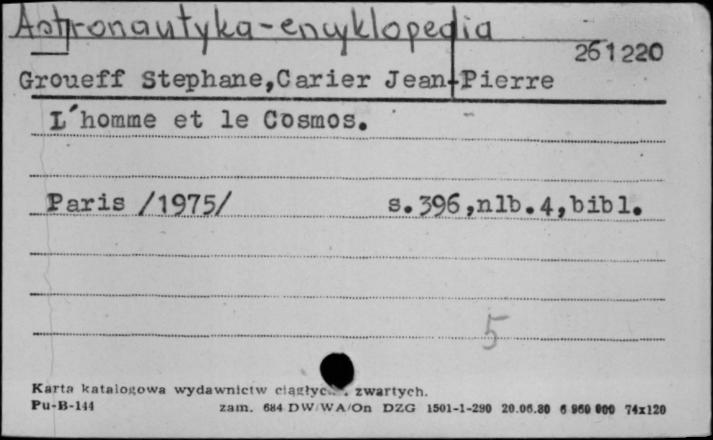 Astronautyka-encyklopedia
261220
Groueff Stephane,Carier Jean-Pierre
L'homme et le Cosmos.
Paris /1975/ s.396,nlb.4,bibl.
5
Karta katalogowa wydawnictw zwartych.
Pu-B-144 zam. 684 DW/WA/On DZG 1501-1-290 20.06.80 6 960 000 74x120